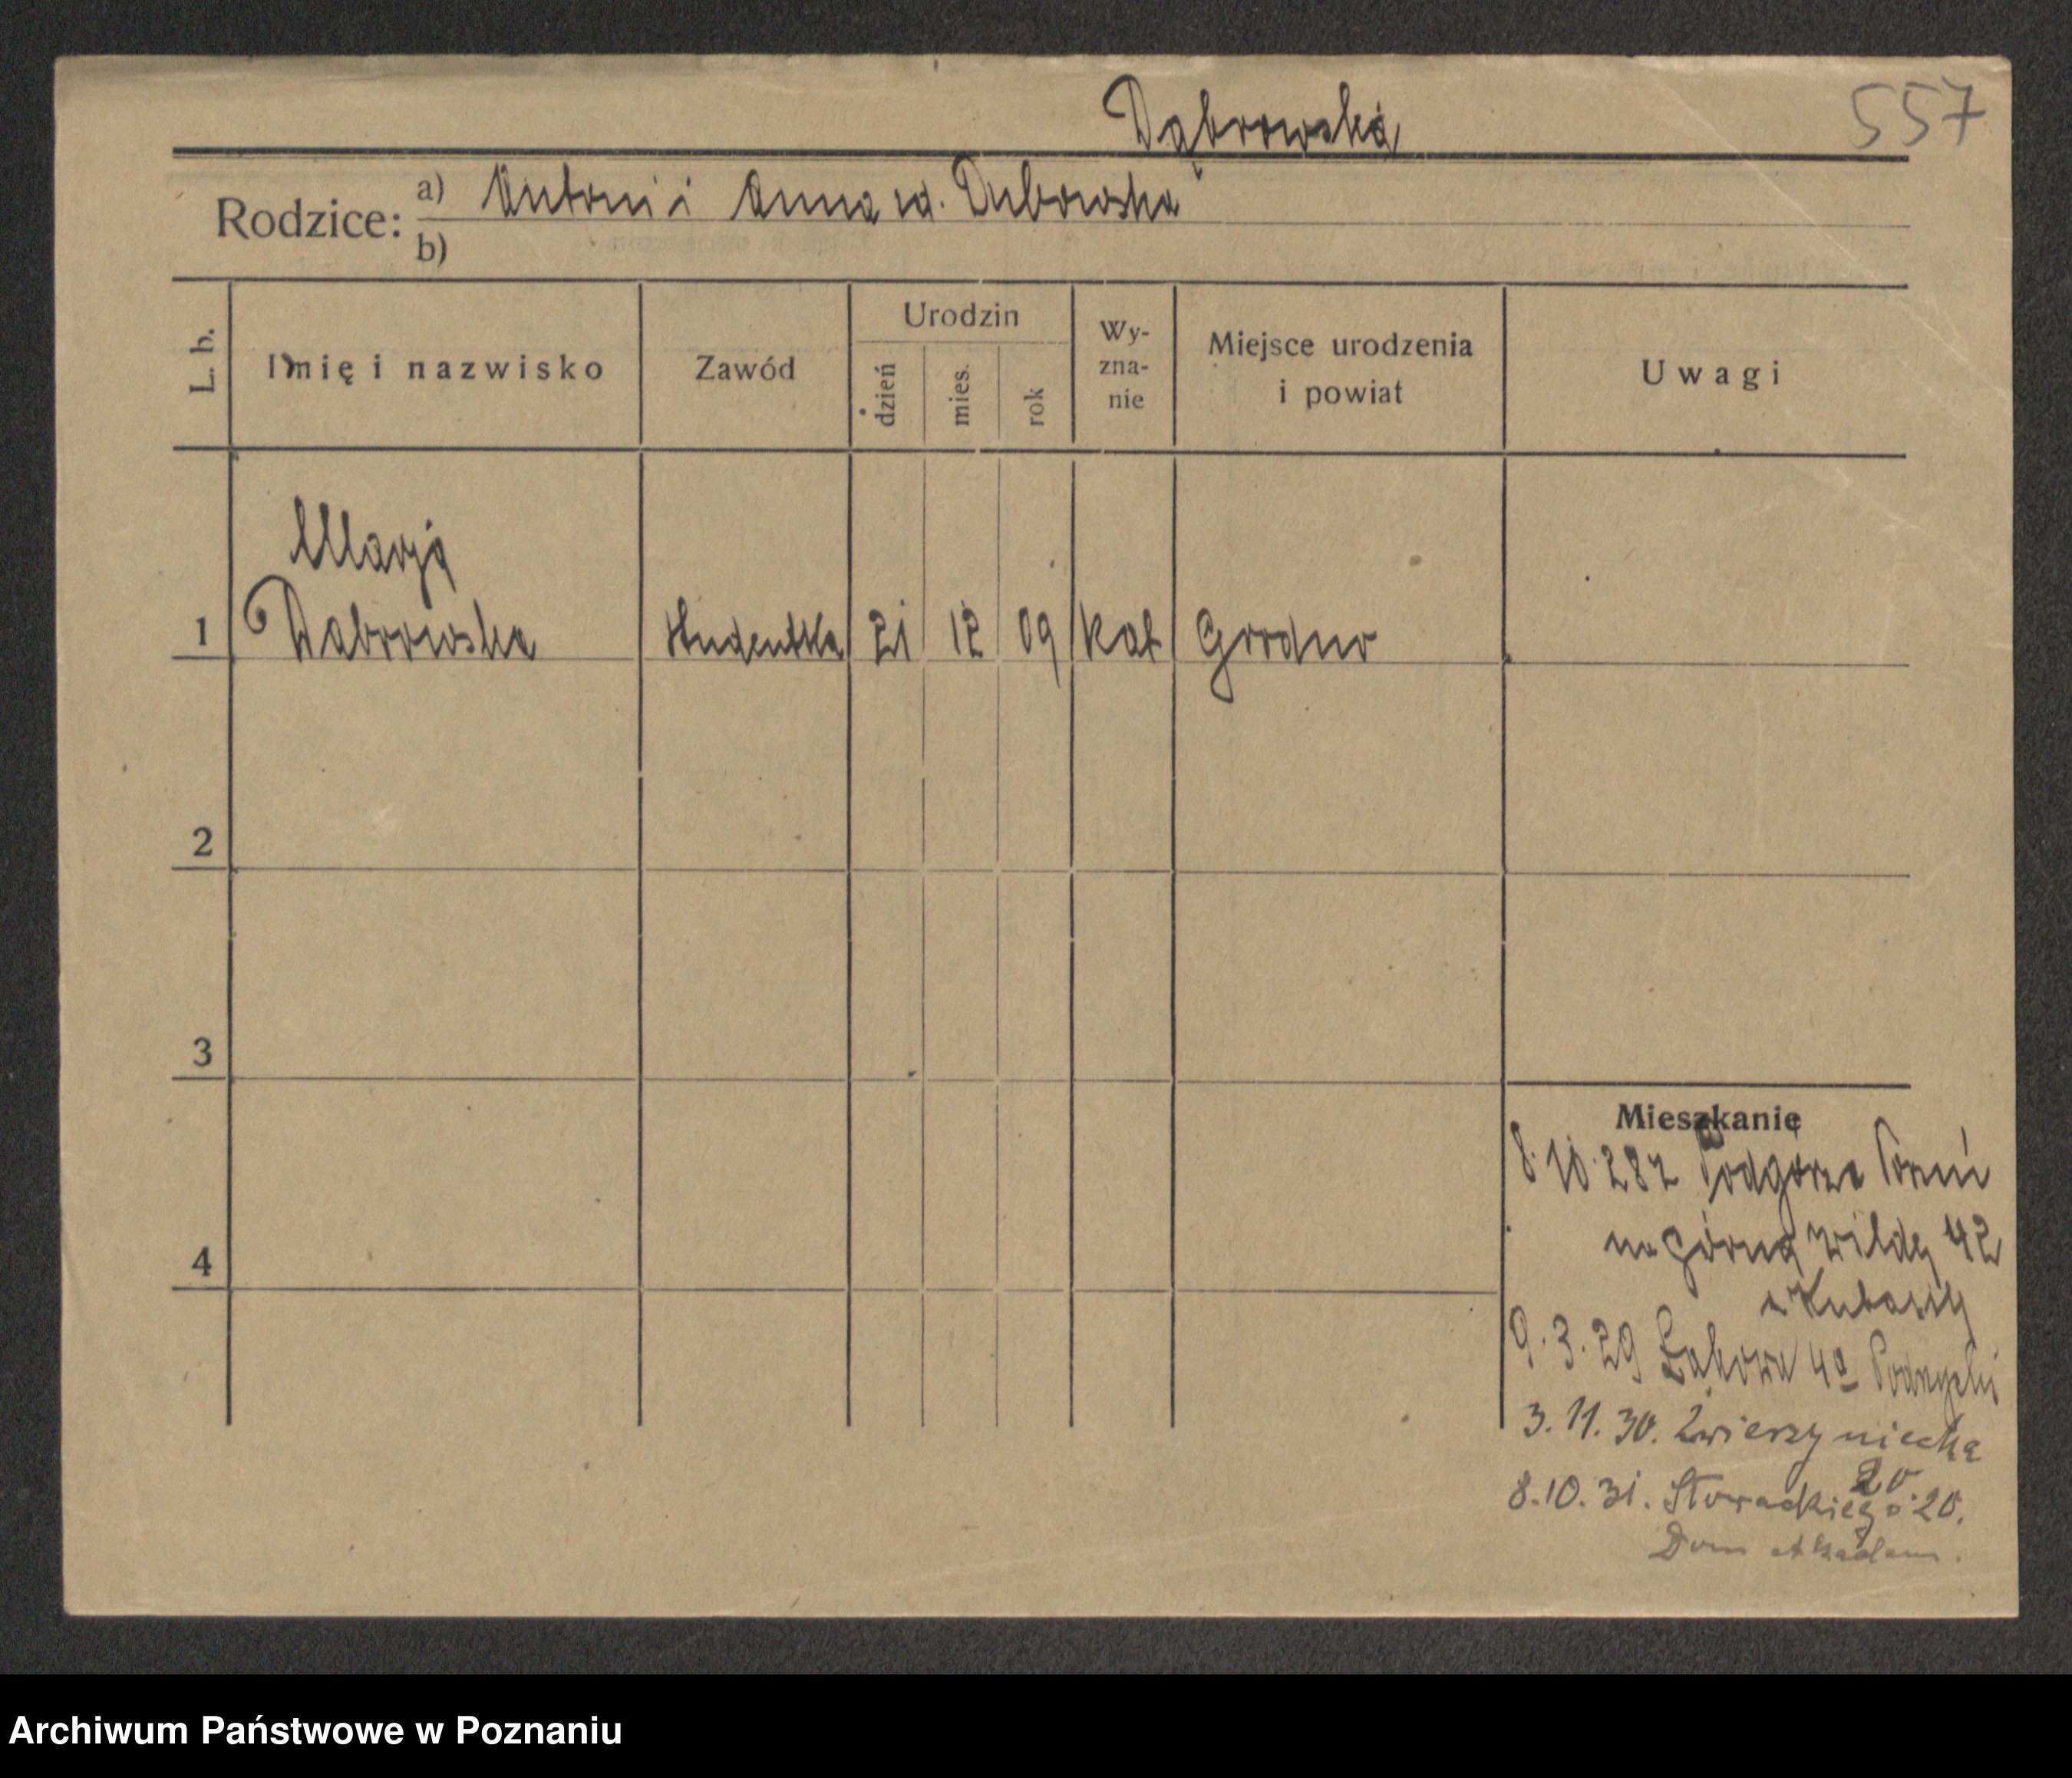 Dąbrowska
557
Rodzice: a) Antoni i Anna ur. Dubowska
b)
L. b. Imię i nazwisko Zawód Urodzin dzień mies. rok Wyznanie Miejsce urodzenia i powiat Uwagi
Marja
1 Dąbrowska studentka 21 12 09 kat Grodno
2
3
4
Mieszkanie
8.10.28 z Podgórza Toruń
na Górną Wildę 42
9.3.29 Łąkowa 4a
3.11.30. Zwierzyniecka
20.
8.10.31. Słowackiego 20.
Dom Akadem.
Archiwum Państwowe w Poznaniu